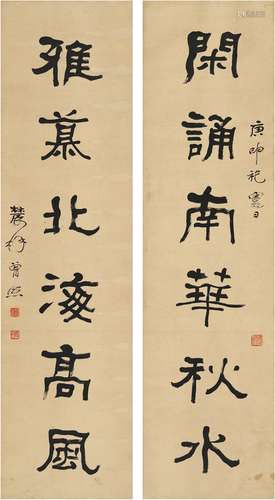 閑誦南華秋水
庚申祀竈日
雅慕北海高風
農髯曾熙